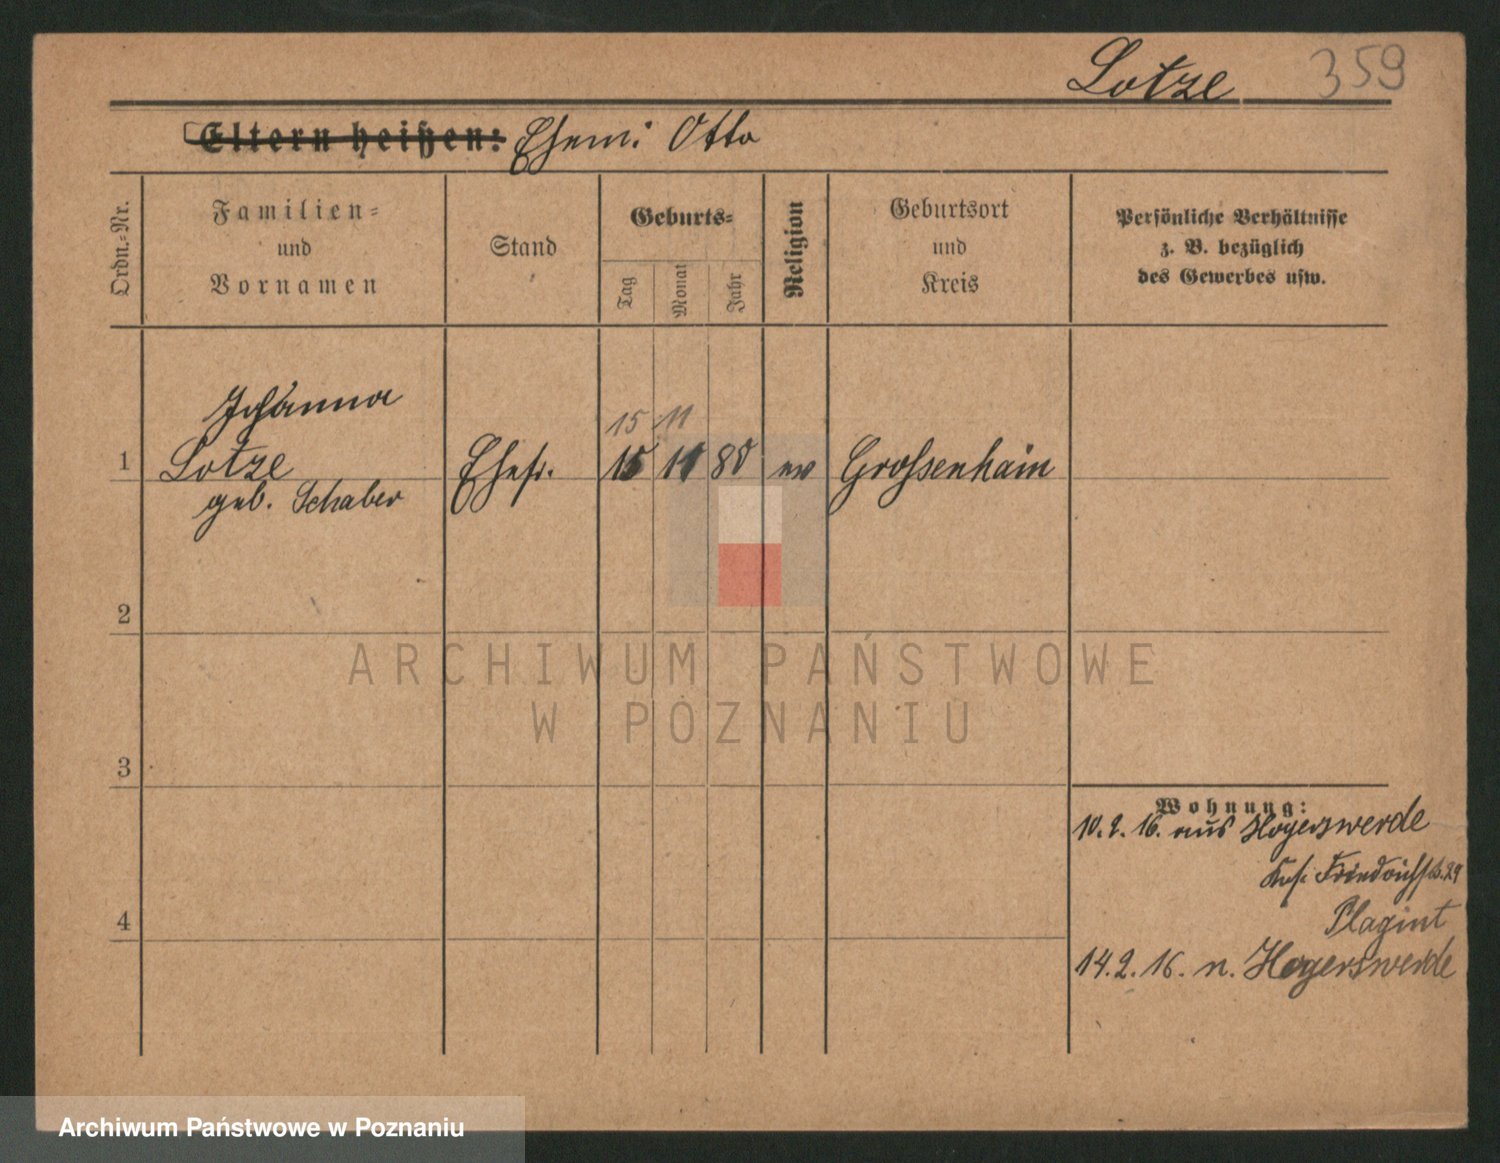 Lotze 359
Eltern heißen: Ehem: Otto
Ordn.-Nr.
Familien-
und
Vornamen
Stand
Geburts-
Tag
Monat
Jahr
Religion
Geburtsort
und
Kreis
Persönliche Verhältnisse
z. B. bezüglich
des Gewerbes usw.
Johanna
15 11
1 Lotze Ehefr. 15 11 80 ev Großenhain
geb. Schaber
2
ARCHIWUM PAŃSTWOWE
W POZNANIU
3
Wohnung:
10. 2. 16. aus Hoyerswerde
Friedrichstr. 29
4
14. 2. 16. n. Hoyerswerde
Archiwum Państwowe w Poznaniu